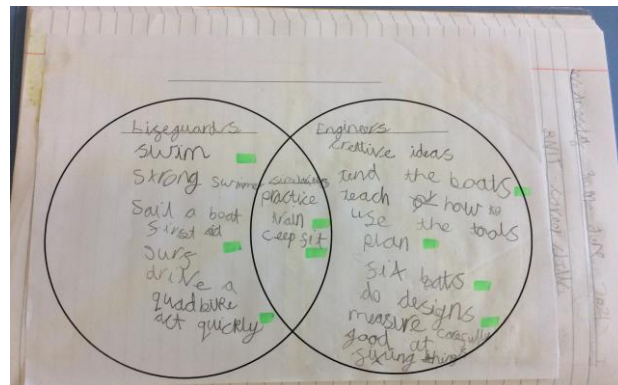 Liseguards
swim
strong swimmer
Sail a boat
first aid
surf
drive a
quadbike
act quickly
similarities
practice
train
ceep fit
Engineers
crettive ideas
tend the boats
teach how to
use the tools
plan
fix bots
do designs
measure carefully
good at
fixing things